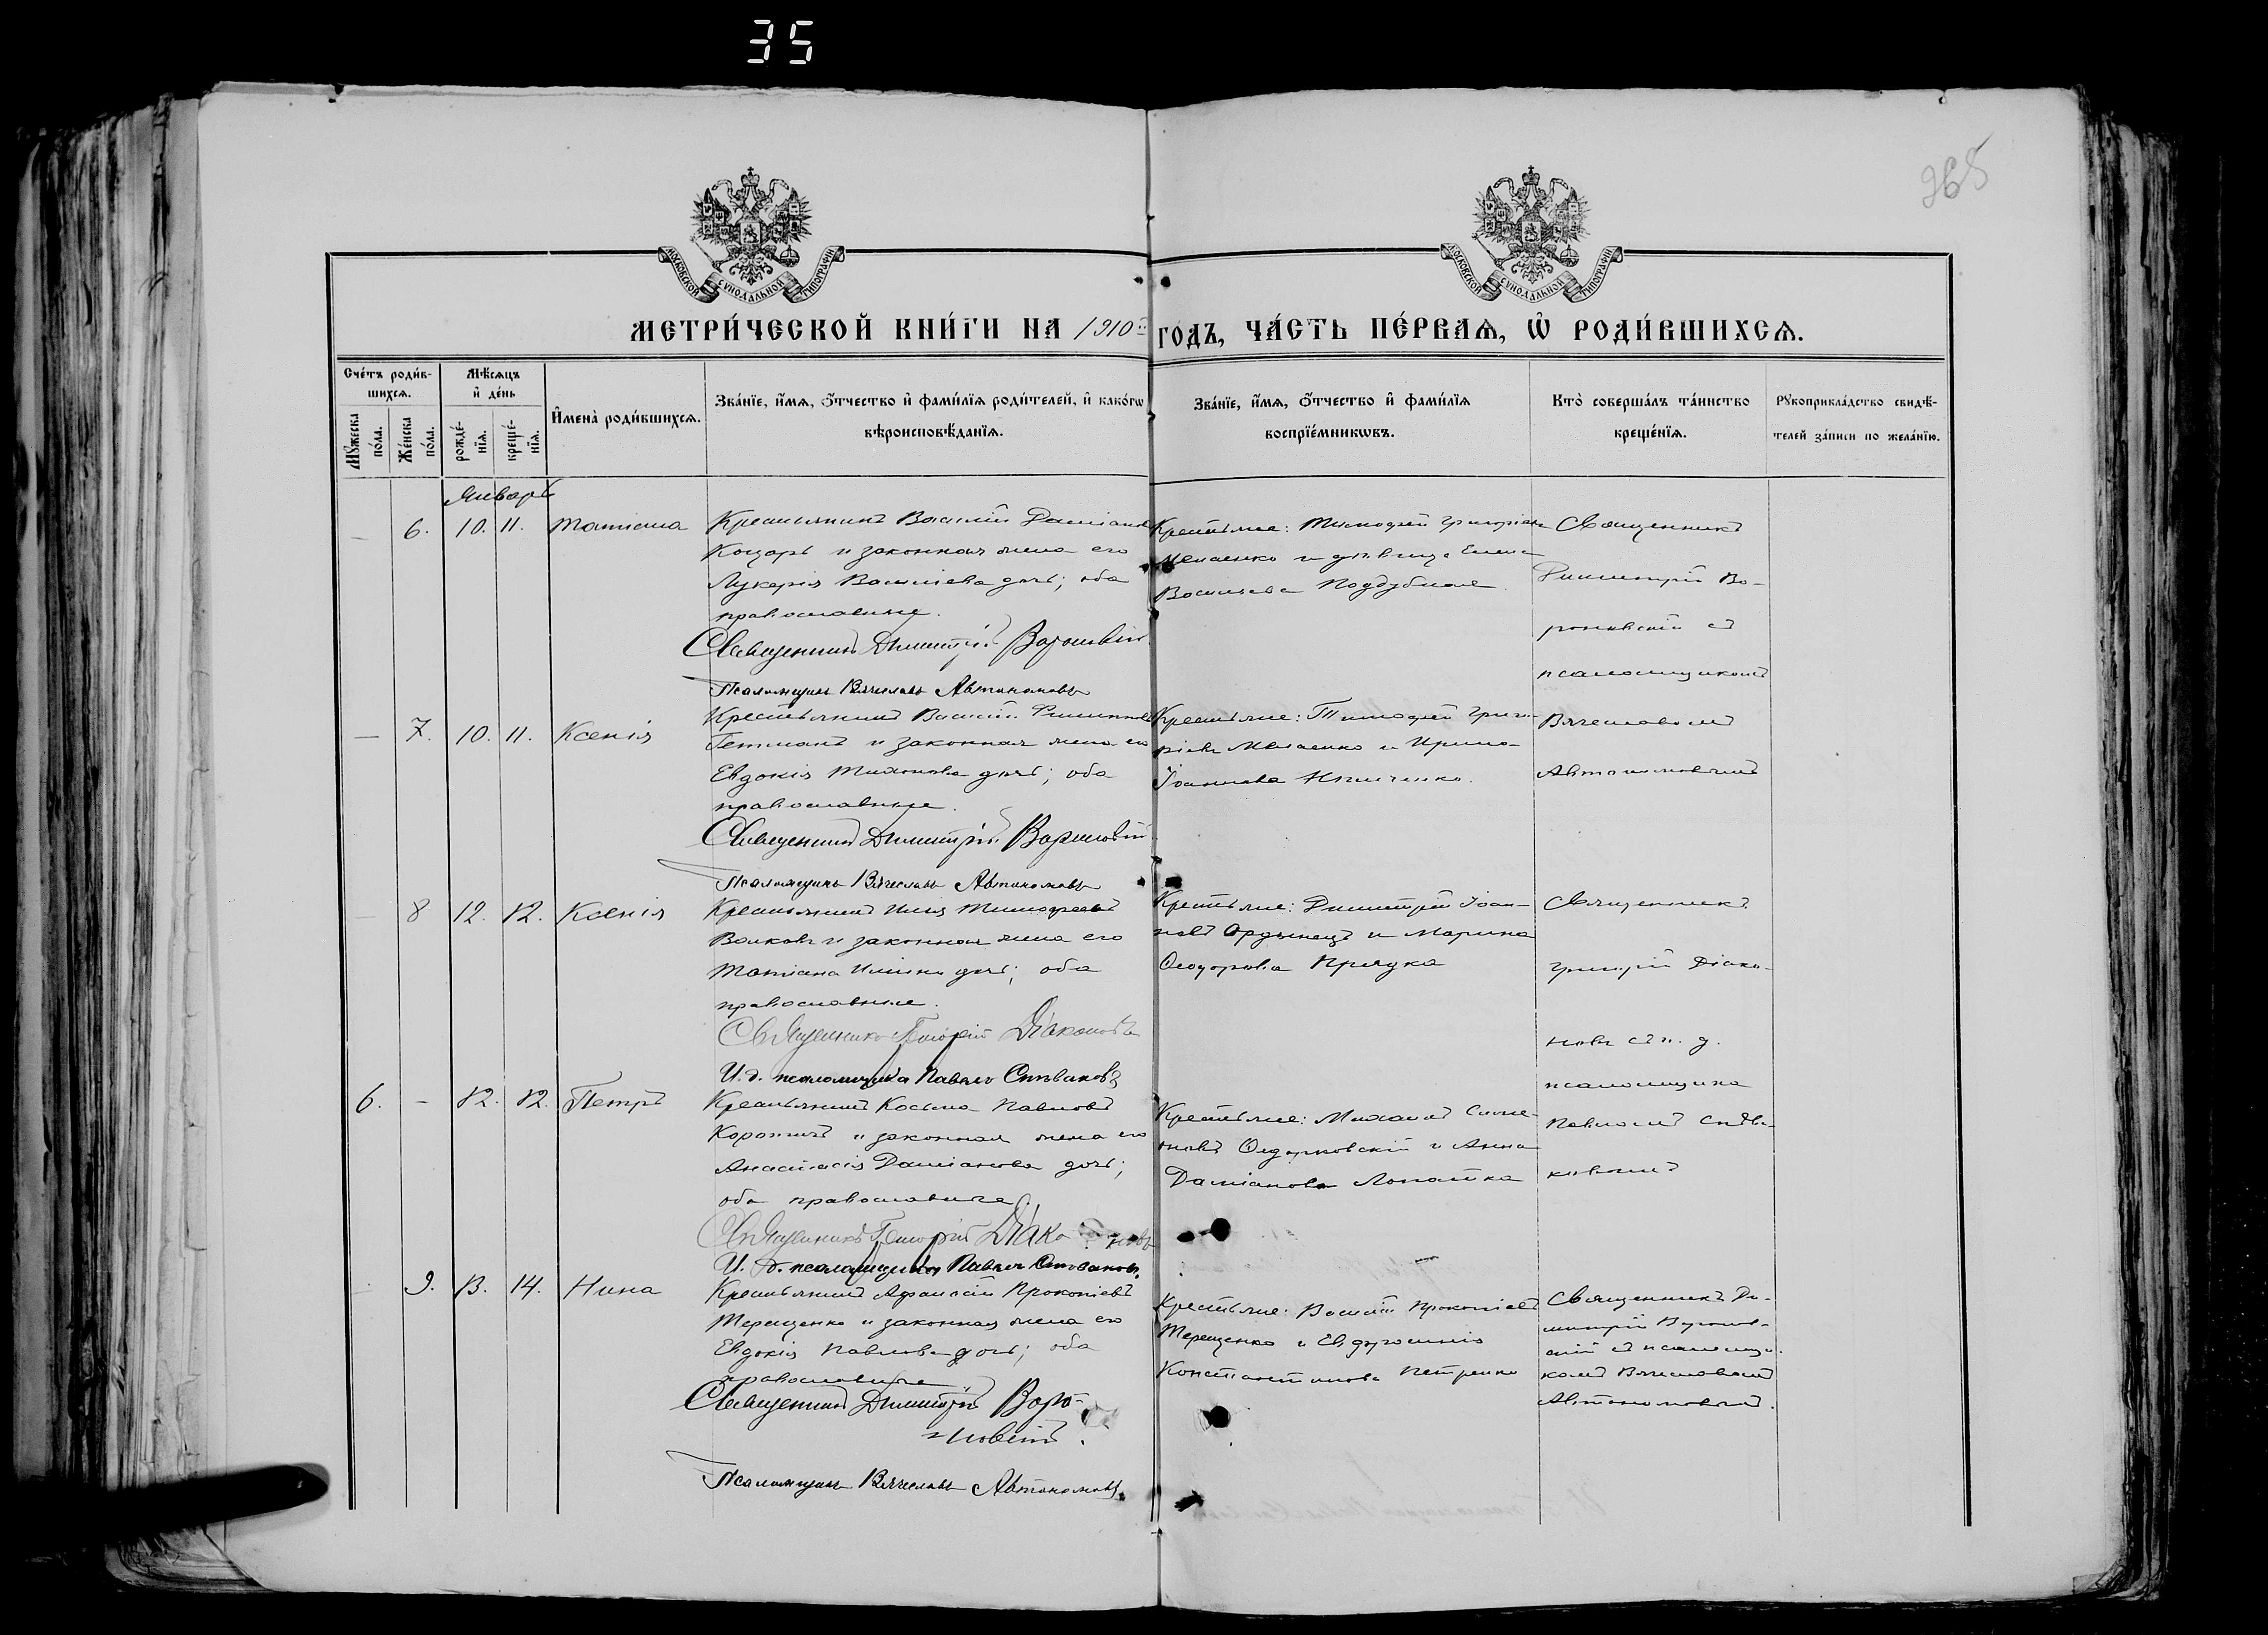 35
268
МОСКОВСКОЙ СѴНОДАЛЬНОЙ ТИПОГРАФІИ
МОСКОВСКОЙ СѴНОДАЛЬНОЙ ТИПОГРАФІИ
МЕТРИ́ЧЕСКОЙ КНИ́ГИ НА 1910й ГО́ДЪ, ЧА́СТЬ ПЕ́РВАѦ, Ѡ҆ РОДИ́ВШИХСѦ.
Сче́тъ роди́в-
шихсѧ.
Мꙋ́жеска по́ла.
Же́нска по́ла.
Мѣ́сѧцъ
и҆ де́нь
рожде́-
нїѧ.
креще́-
нїѧ.
И҆мена̀ роди́вшихсѧ.
Зва́нїе, и҆́мѧ, ѻ҆́тчество и҆ фами́лїѧ роди́телей, и҆ како́гѡ
вѣроисповѣ́данїѧ.
Зва́нїе, и҆́мѧ, ѻ҆́тчество и҆ фами́лїѧ
воспрїе́мникѡвъ.
Кто̀ соверша́лъ та́инство
креще́нїѧ.
Рꙋкоприкла́дство свидѣ́-
телей за́писи по жела́нїю.
Январь
— 6. 10. 11. Татіана
Крестьянинъ Василій Даміановъ
Коцарь и законная жена его
Лукерія Васильева дочь; оба
православные.
Священникъ Димитрій
Псаломщикъ Вячеславъ Автономовъ
Крестьяне: Тимофей Григоріевъ
и дѣвица Елена
Васильева Поддубная
Священникъ
Димитрій Во-
роновскій съ
псаломщикомъ
Вячеславомъ
Автономовымъ
— 7. 10. 11. Ксенія
Крестьянинъ Василій Филипповъ
Гетманъ и законная жена его
Евдокія Тихонова дочь; оба
православные.
Священникъ Димитрій
Псаломщикъ Вячеславъ Автономовъ
Крестьяне: Тимофей Григо-
ріевъ и Ирина
Іоаннова
— 8 12. 12. Ксенія
Крестьянинъ Илія Тимофеевъ
Волковъ и законная жена его
Татіана Ильина дочь; оба
православные.
Священникъ Григорій Діаконовъ
И. д. псаломщика Павелъ Спѣваковъ
Крестьяне: Димитрій Іоан-
новъ Ордынецъ и Марина
Ѳеодорова Прядка
Священникъ
Григорій Діако-
новъ съ и. д.
псаломщика
Павломъ Спѣва-
ковымъ
6. — 12. 12. Петръ
Крестьянинъ Косьма Павловъ
и законная жена его
Анастасія Даміанова дочь;
оба православные.
Священникъ Григорій Діаконовъ
И. д. псаломщика Павелъ Спѣваковъ
Крестьяне: Михаилъ Симе-
оновъ и Анна
Даміанова Лопатка
— 9. 13. 14. Нина
Крестьянинъ Афанасій Прокопіевъ
Терещенко и законная жена его
Евдокія Павлова дочь; оба
православные.
Священникъ Димитрій Воро-
новскій.
Псаломщикъ Вячеславъ Автономовъ.
Крестьяне: Василій Прокопіевъ
Терещенко и Евфросинія
Константинова Петренко
Священникъ Ди-
митрій Воронов-
скій съ псаломщи-
комъ Вячеславомъ
Автономовымъ.